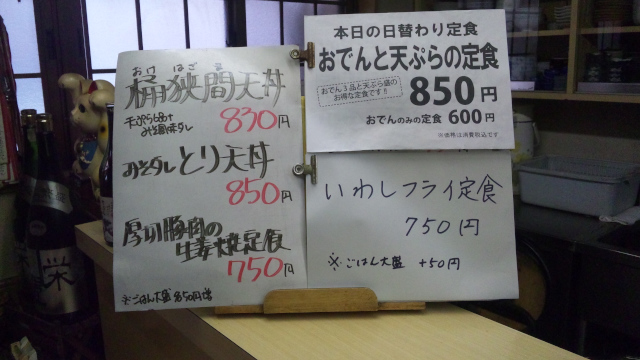 おけ はざま
桶狭間天丼
みそ風味タレ
830円
みそダレとり天丼
850円
厚切豚肉の
生姜焼定食
750円
※ごはん大盛
50円増
本日の日替わり定食
おでんと天ぷらの定食
おでん3品と天ぷら盛の
お得な定食です!!
850円
おでんのみの定食 600円
※価格は消費税込です
いわしフライ定食
750円
※ごはん大盛 +50円
栄